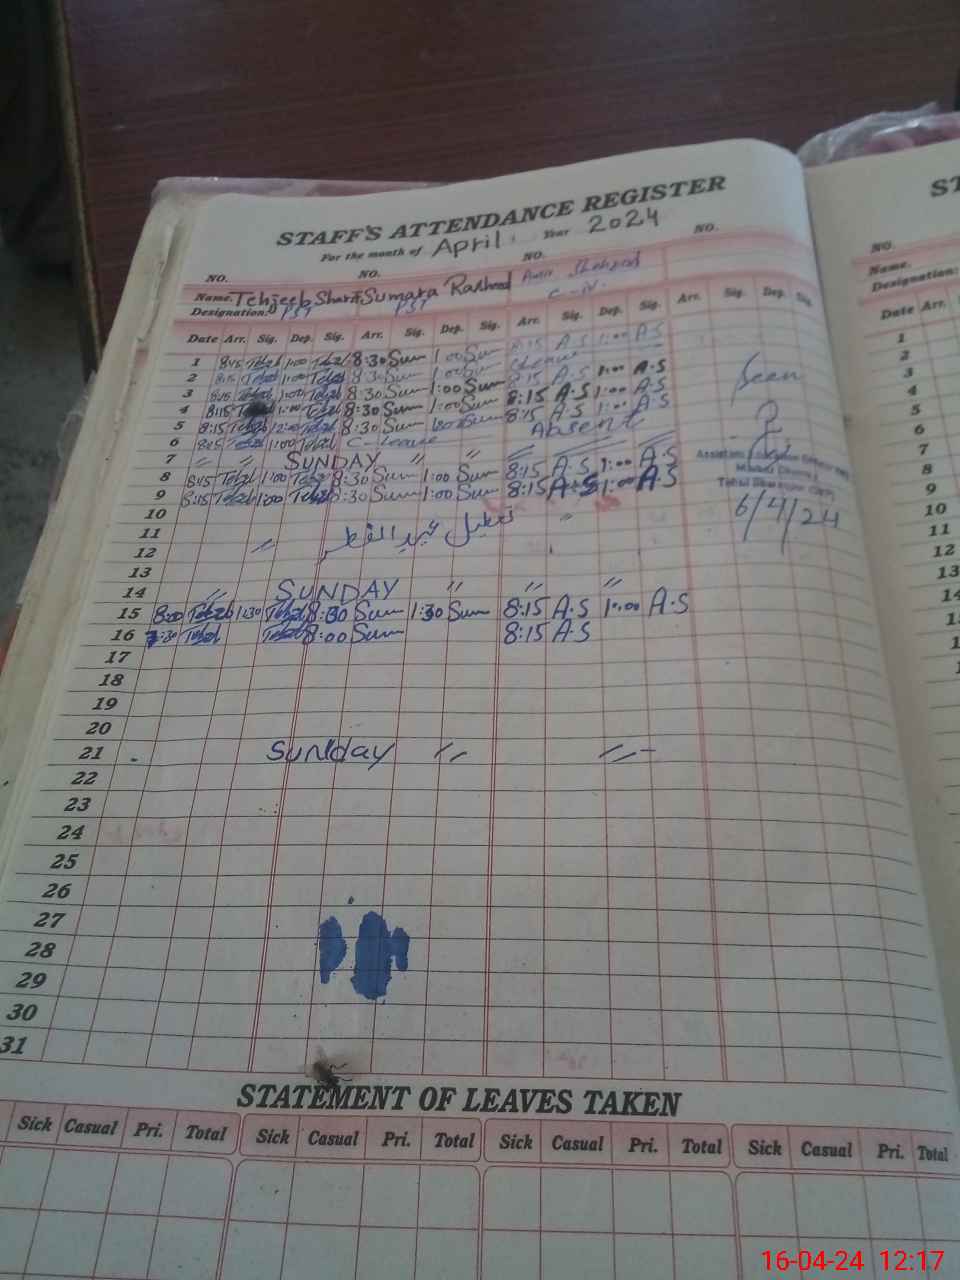 STAFF'S ATTENDANCE REGISTER
For the month of April Year 2024
NO. NO. NO. NO.
Name. Tehzeeb Sharif Sumara Rasheed Amir Shehzad
Designation. PST PST C-IV.
Date Arr. Sig. Dep. Sig. Arr. Sig. Dep. Sig. Arr. Sig. Dep. Sig. Arr. Sig. Dep. Sig.
1 8:45 1:00 8:30 Sum 1:00 Sum 8:15 A.S 1:00 A.S
2 8:15 1:00 8:30 Sum 1:00 Sum Leave
3 8:15 1:00 8:30 Sum 1:00 Sum 8:15 A.S 1:00 A.S
4 8:15 1:00 8:30 Sum 1:00 Sum 8:15 A.S 1:00 A.S
5 8:15 12:00 8:30 Sum Sum 8:15 A.S 1:00 A.S
6 8:15 1:00 C-Leave Absent
7 〃 〃 SUNDAY 〃 〃 〃
8 8:45 1:00 8:30 Sum 1:00 Sum 8:15 A.S 1:00 A.S
9 8:15 1:00 8:30 Sum 1:00 Sum 8:15 A.S 1:00 A.S
Seen
6/4/24
10
11 تعطیل عید الفطر 〃
12 〃
13
14 〃 SUNDAY 〃 〃 〃
15 8:00 1:30 8:30 Sum 1:30 Sum 8:15 A.S 1:00 A.S
16 7:30 8:00 Sum 8:15 A.S
17
18
19
20
21 Sunday 〃 〃
22
23
24
25
26
27
28
29
30
31
STATEMENT OF LEAVES TAKEN
Sick Casual Pri. Total Sick Casual Pri. Total Sick Casual Pri. Total Sick Casual Pri. Total
ST
NO.
Name.
Designation:
Date Arr.
1
2
3
4
5
6
7
8
9
10
11
12
13
14
16-04-24 12:17